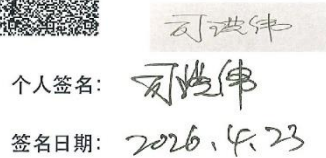 司洪伟
个人签名: 司洪伟
签名日期: 2026.4.23